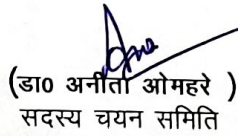 (डा0 अनीता ओमहरे )
सदस्य चयन समिति